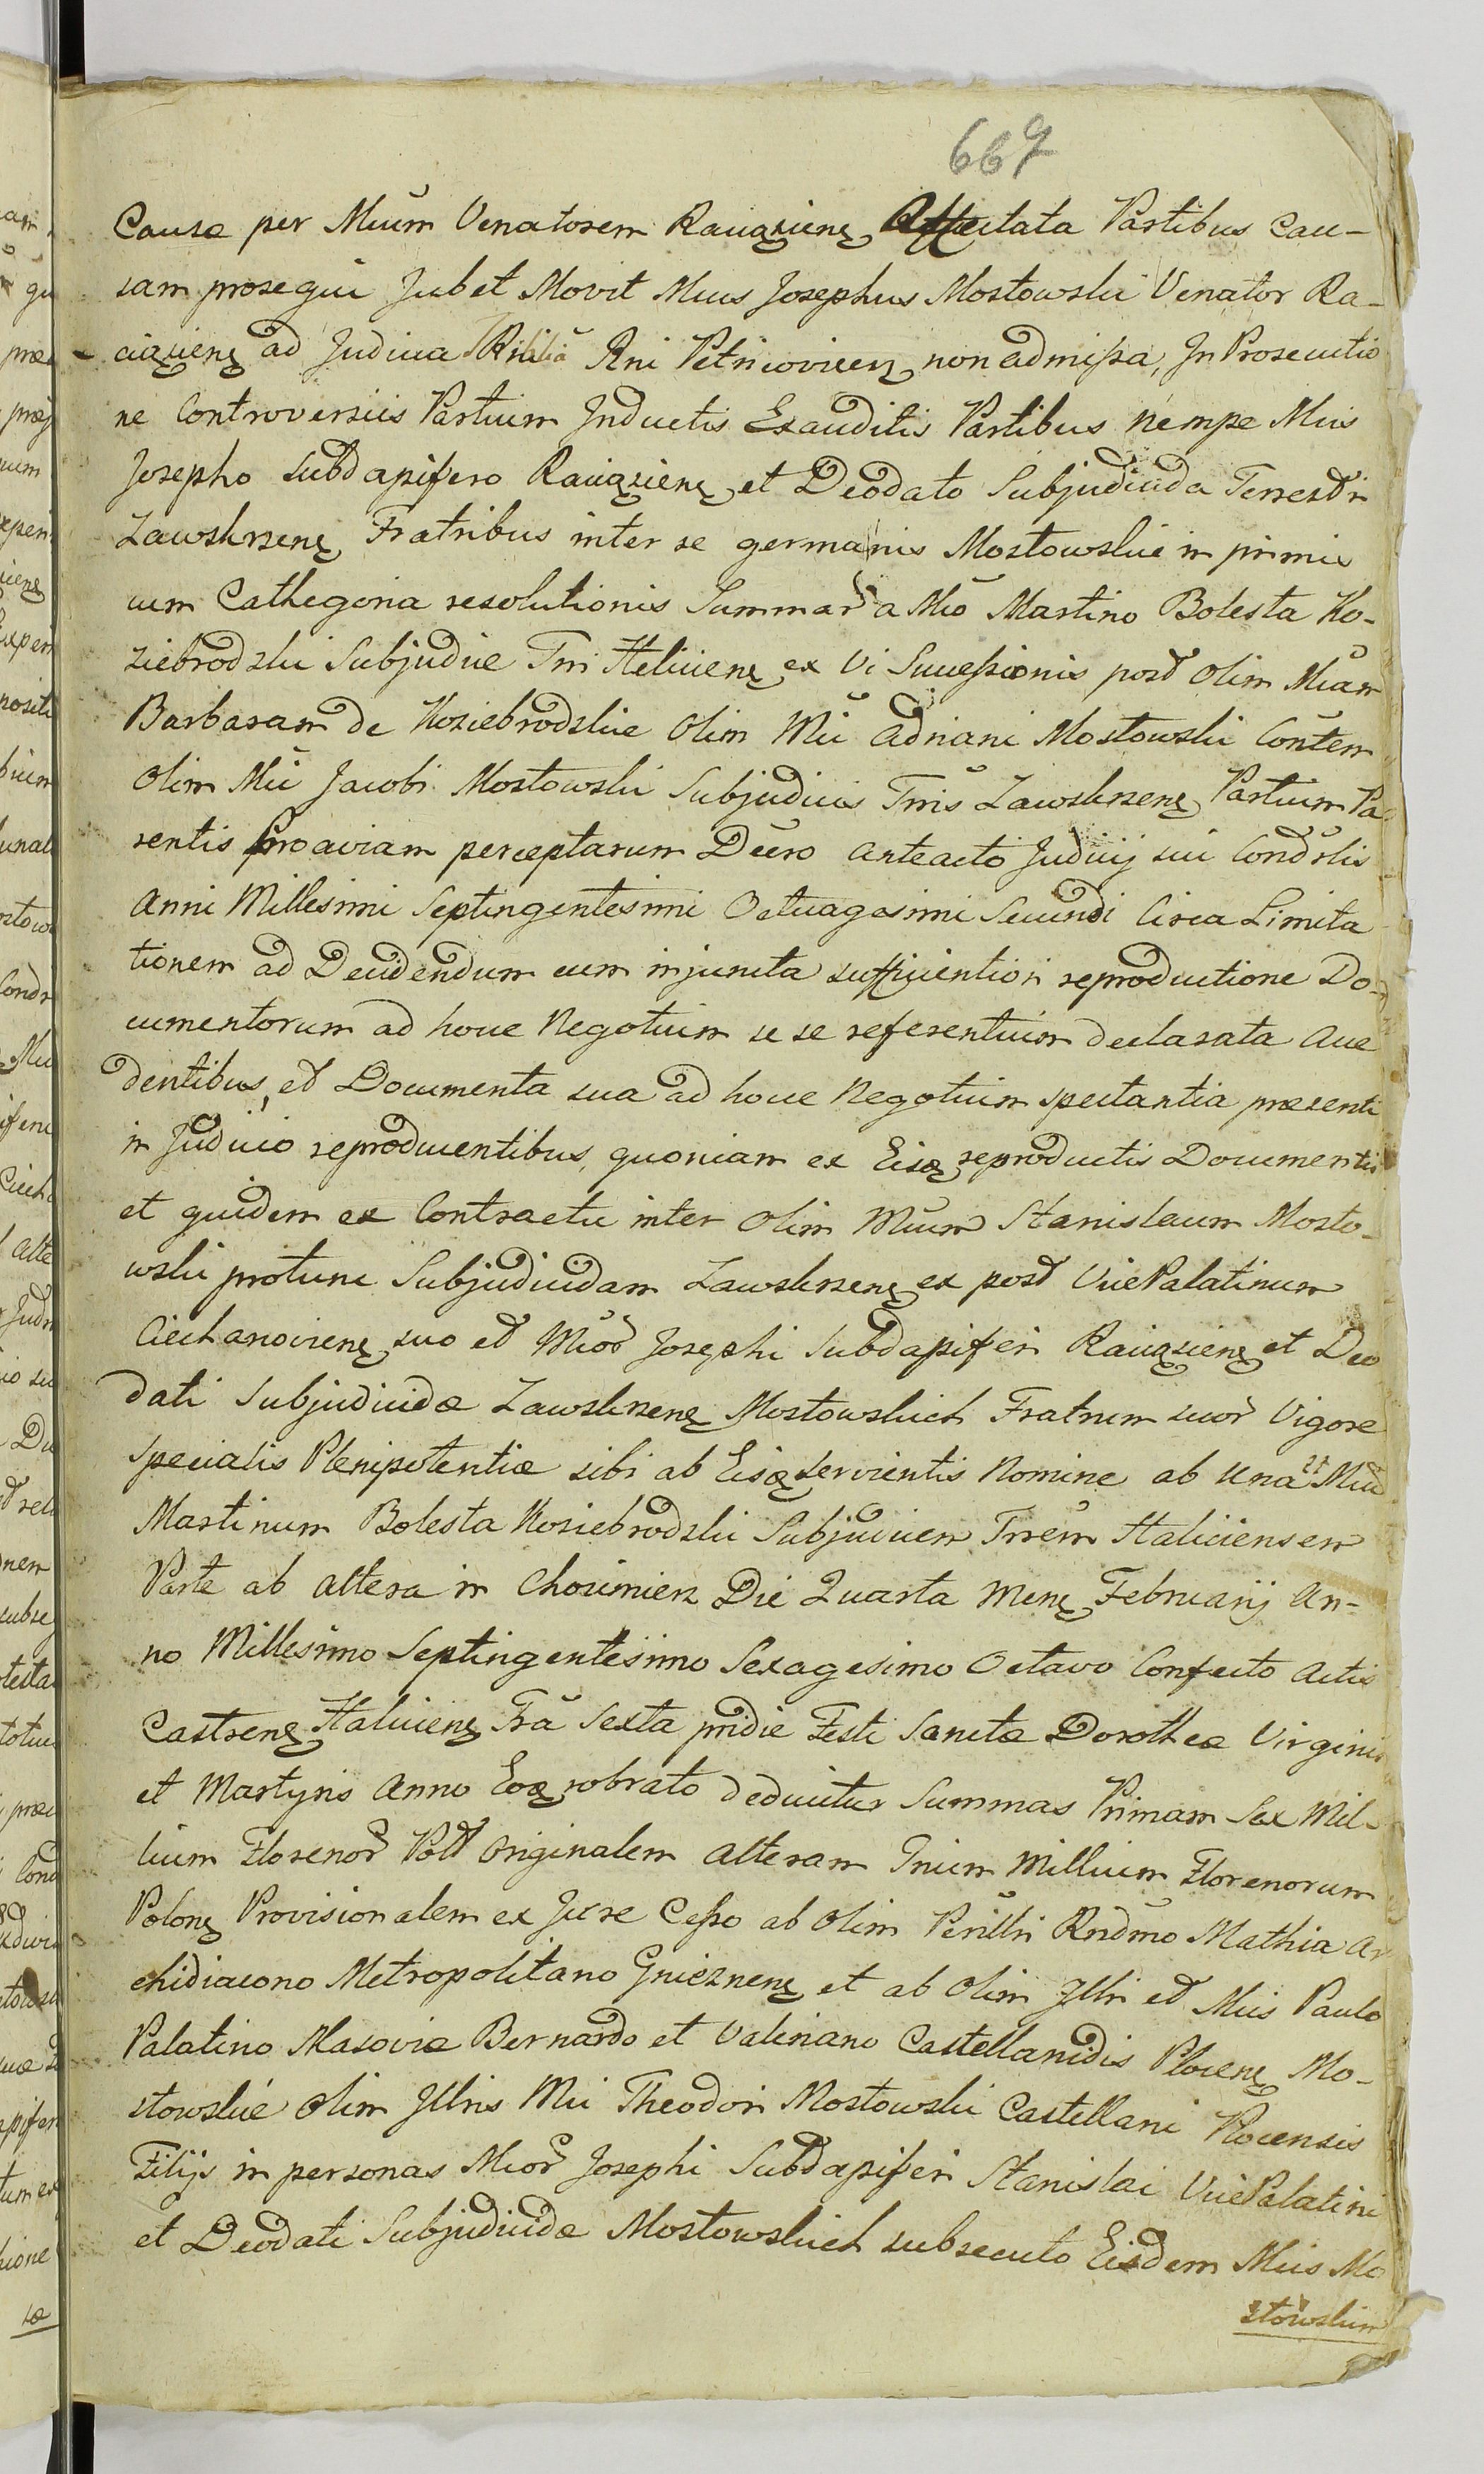 667
Causæ per Mũum Venatorem Raciązieñ Affectata Partibus Cau-
sam prosequi Jubet Movit Mũus Josephus Mostowski Venator Ra-
ciązieñ ad Judicia Rñi Petricovieñ non admissa, In Prosecutio
ne Controversiis Partium Inductis Exauditis Partibus nempe Mĩis
Josepho Subdapifero Raciązieñ et Deodato Subjudicida Terrestri
Zawskrzeñ Fratribus inter se germanis Mostowskie in primis
cum Cathegoria resolutionis Summar̃ a Mĩo Martino Bolesta Ko-
ziebrodzki Subjudice Trri Halicieñ ex Vi Successionis post Olim Mĩam
Barbaram de Koziebrodzkie Olim Mĩi Adriani Mostowski Cõntem
Olim Mĩi Jacobi Mostowski Subjudicis Trris Zawskrzeñ Partium Pa
rentis Proaviam perceptarum Dẽcro anteacto Judicij sui Cond̃rlis
Anni Millesimi Septingentesimi Octuagesimi Secundi Circa Limita
tionem ad Decidendum cum injuncta sufficientiori reproductione Do-
cumentorum ad hocce Negotium se se referentium declarata Acce
dentibus, et Documenta sua ad hocce Negotium spectantia præsenti
in Judicio reproducentibus, quoniam ex Eisq̃ reproductis Documentis
et quidem ex Contractu inter Olim Mĩum Stanislaum Mosto-
wski protunc Subjudicidam Zawskrzeñ ex post VicePalatinum
Ciechanovieñ suo et Mĩor̃ Josephi Subdapiferi Raciązieñ et Deo
dati Subjudicidæ Zawskrzeñ Mostowskich Fratrum suor̃ Vigore
Specialis Plenipotentiæ sibi ab Eisq̃ servientis Nomine ab Una et Mĩũ
Martinum Bolesta Koziebrodzki Subjudicem Trrem Haliciensem
Parte ab altera in Chocimierz Die Quarta Meñ Februarij An-
no Millesimo Septingentesimo Sexagesimo Octavo Confecto Actis
Castreñ Halicieñ Fr̃a Sexta pridie Festi Sanctæ Dorotheæ Virginis
et Martyris Anno Eoq̃ roborato deducitur Summas Primam Sex Mil-
lium Florenor̃ Pol̃ Originalem Alteram Trium Millium Florenorum
Poloñ Provisionalem ex Jure Cesso ab Olim Perillri Rñdmo Mathia Ar
chidiacono Metropolitano Gniezneñ et ab Olim Illri et Mĩis Paulo
Palatino Masoviæ Bernardo et Valeriano Castellanidis Ploceñ Mo-
stowskie Olim Illris Mĩi Theodori Mostowski Castellani Plocensis
Filijs in personas Mĩor̃ Josephi Subdapiferi Stanislai VicePalatini
et Deodati Subjudicidæ Mostowskich subsecuto Eisdem Mĩis Mo
stowskim